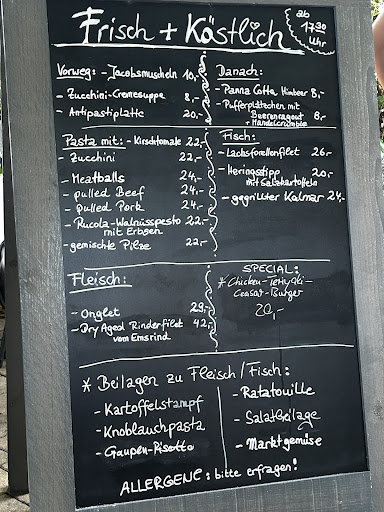 Frisch + Köstlich
ab
17.30
Uhr
Vorweg: - Jacobsmuscheln 10,-
- Zucchini-Cremesuppe 8,-
- Antipastiplatte 20,-
Danach:
- Panna Cotta Himbeer 8,-
- Pufferplätzchen mit
Beerenragout 8,-
+ Mandelcrumble
Pasta mit: - Kirschtomate 22,-
- Zucchini 22,-
- Meatballs 24,-
- pulled Beef 24,-
- pulled Pork 24,-
- Rucola-Walnüsspesto 22,-
mit Erbsen
- gemischte Pilze 22,-
Fisch:
- Lachsforellenfilet 26,-
- Heringsstipp 20,-
mit Salzkartoffeln
- gegrillter Kalmar 24,-
Fleisch:
- Onglet 29,-
- Dry Aged Rinderfilet 42,-
vom Emsrind
SPECIAL:
* Chicken-Teriyaki-
Ceasar-Burger
20,-
* Beilagen zu Fleisch/Fisch:
- Kartoffelstampf
- Knoblauchpasta
- Graupen-Risotto
- Ratatouille
- Salatbeilage
- Marktgemüse
ALLERGENE: bitte erfragen!